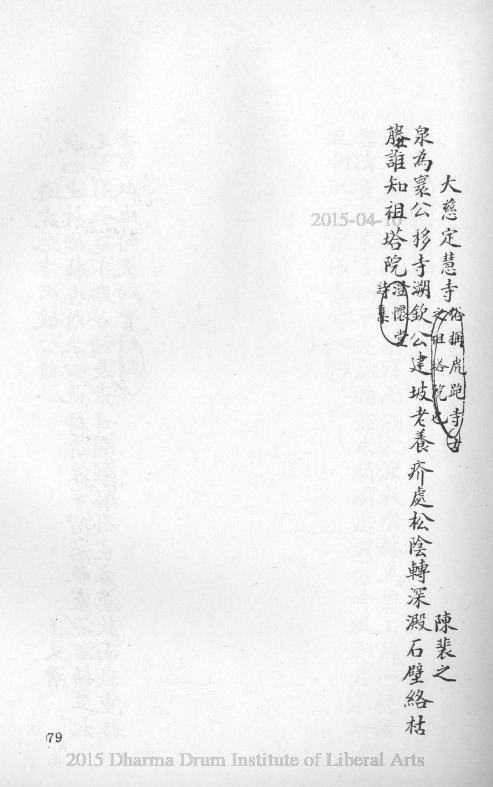 大慈定慧寺 俗稱虎跑寺古之祖塔院也 陳裴之
泉為寰公移寺溯欽公建坡老養疴處松陰轉深澱石壁絡枯
藤誰知祖塔院 澄懷堂詩集
79
2015-04-16
2015 Dharma Drum Institute of Liberal Arts